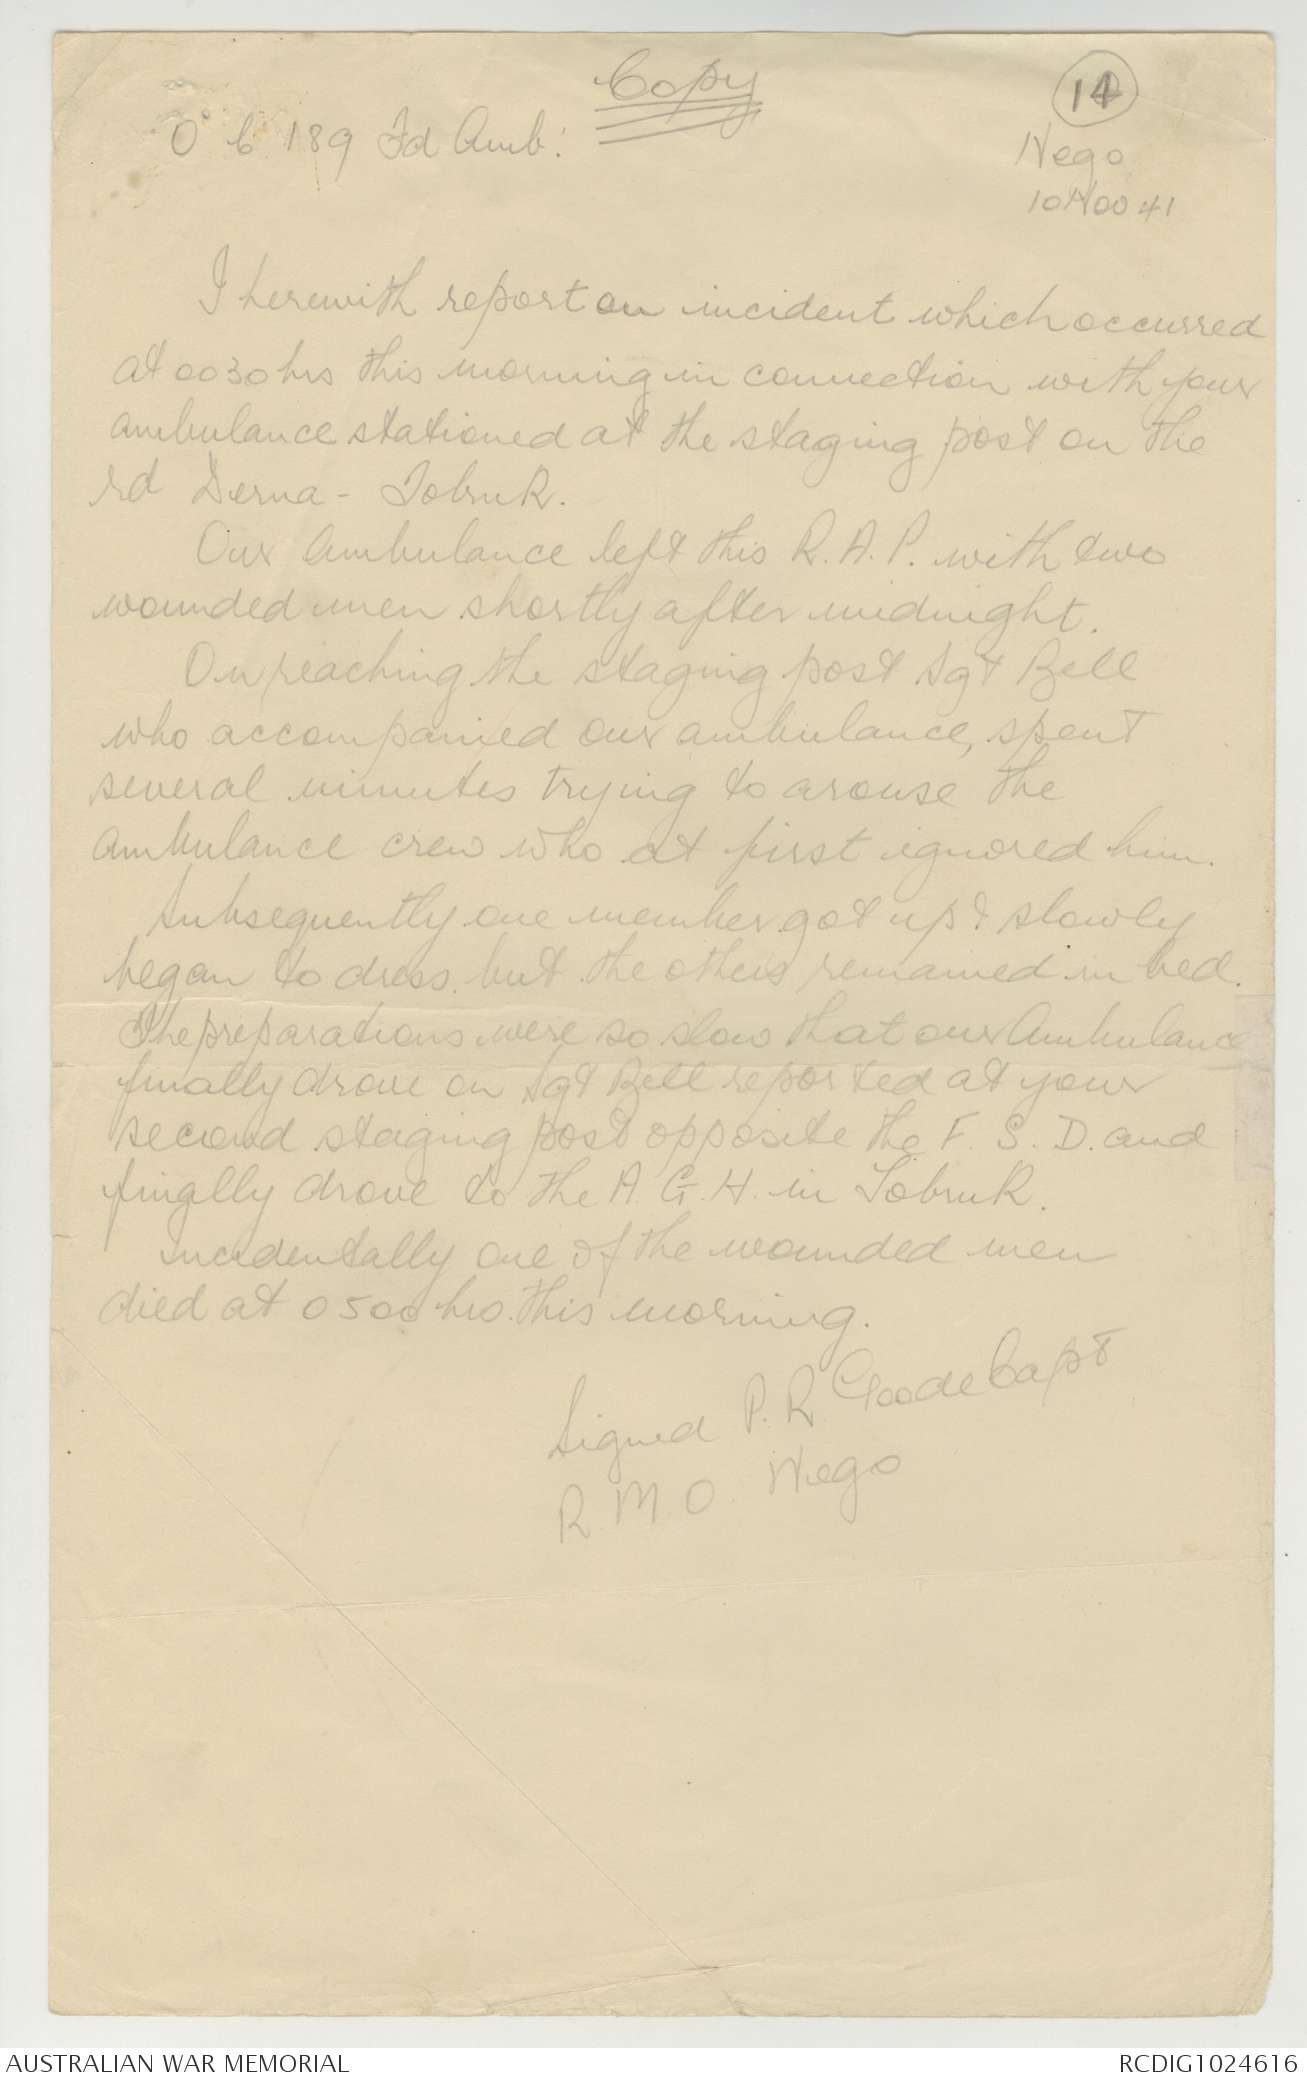 Copy
14
O C 189 Fd Amb:
Nego
10 Nov 41
I herewith report on incident which occurred
at 0030 hrs this morning in connection with your
ambulance stationed at the staging post on the
rd Derna - Tobruk.
Our Ambulance left this R.A.P. with two
wounded men shortly after midnight.
On reaching the staging post Sgt Bell
who accompanied our ambulance, spent
several minutes trying to arouse the
ambulance crew who at first ignored him.
Subsequently one member got up & slowly
began to dress but the others remained in bed.
The preparations were so slow that our Ambulance
finally drove on Sgt Bell reported at your
second staging post opposite the F. S. D. and
finally drove to the A. G. H. in Tobruk.
incidentally one of the wounded men
died at 0500 hrs this morning.
Signed P. R. Goode Capt
R. M. O. Nego
AUSTRALIAN WAR MEMORIAL
RCDIG1024616